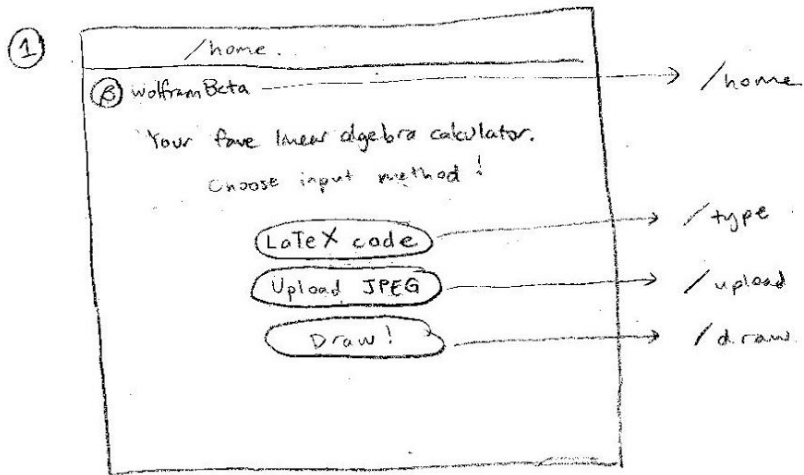 ①
/home.
β wolframBeta
/home
Your fave linear algebra calculator.
Choose input method!
LaTeX code
/type
Upload JPEG
/upload
Draw!
/draw